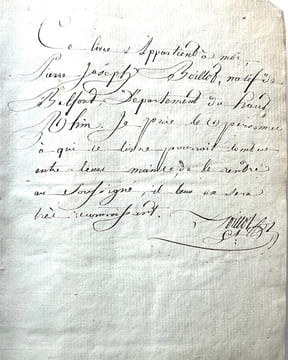 Ce livre Appartient à moi,
Pierre Joseph Boillot, natif de
Belfort, Département du haut
Rhin. Je prie les personnes
à qui ce livre pourrait tomber
entre leurs mains, de le rendre
au Soussigné, il leur en sera
très reconnaissant.
Boillot